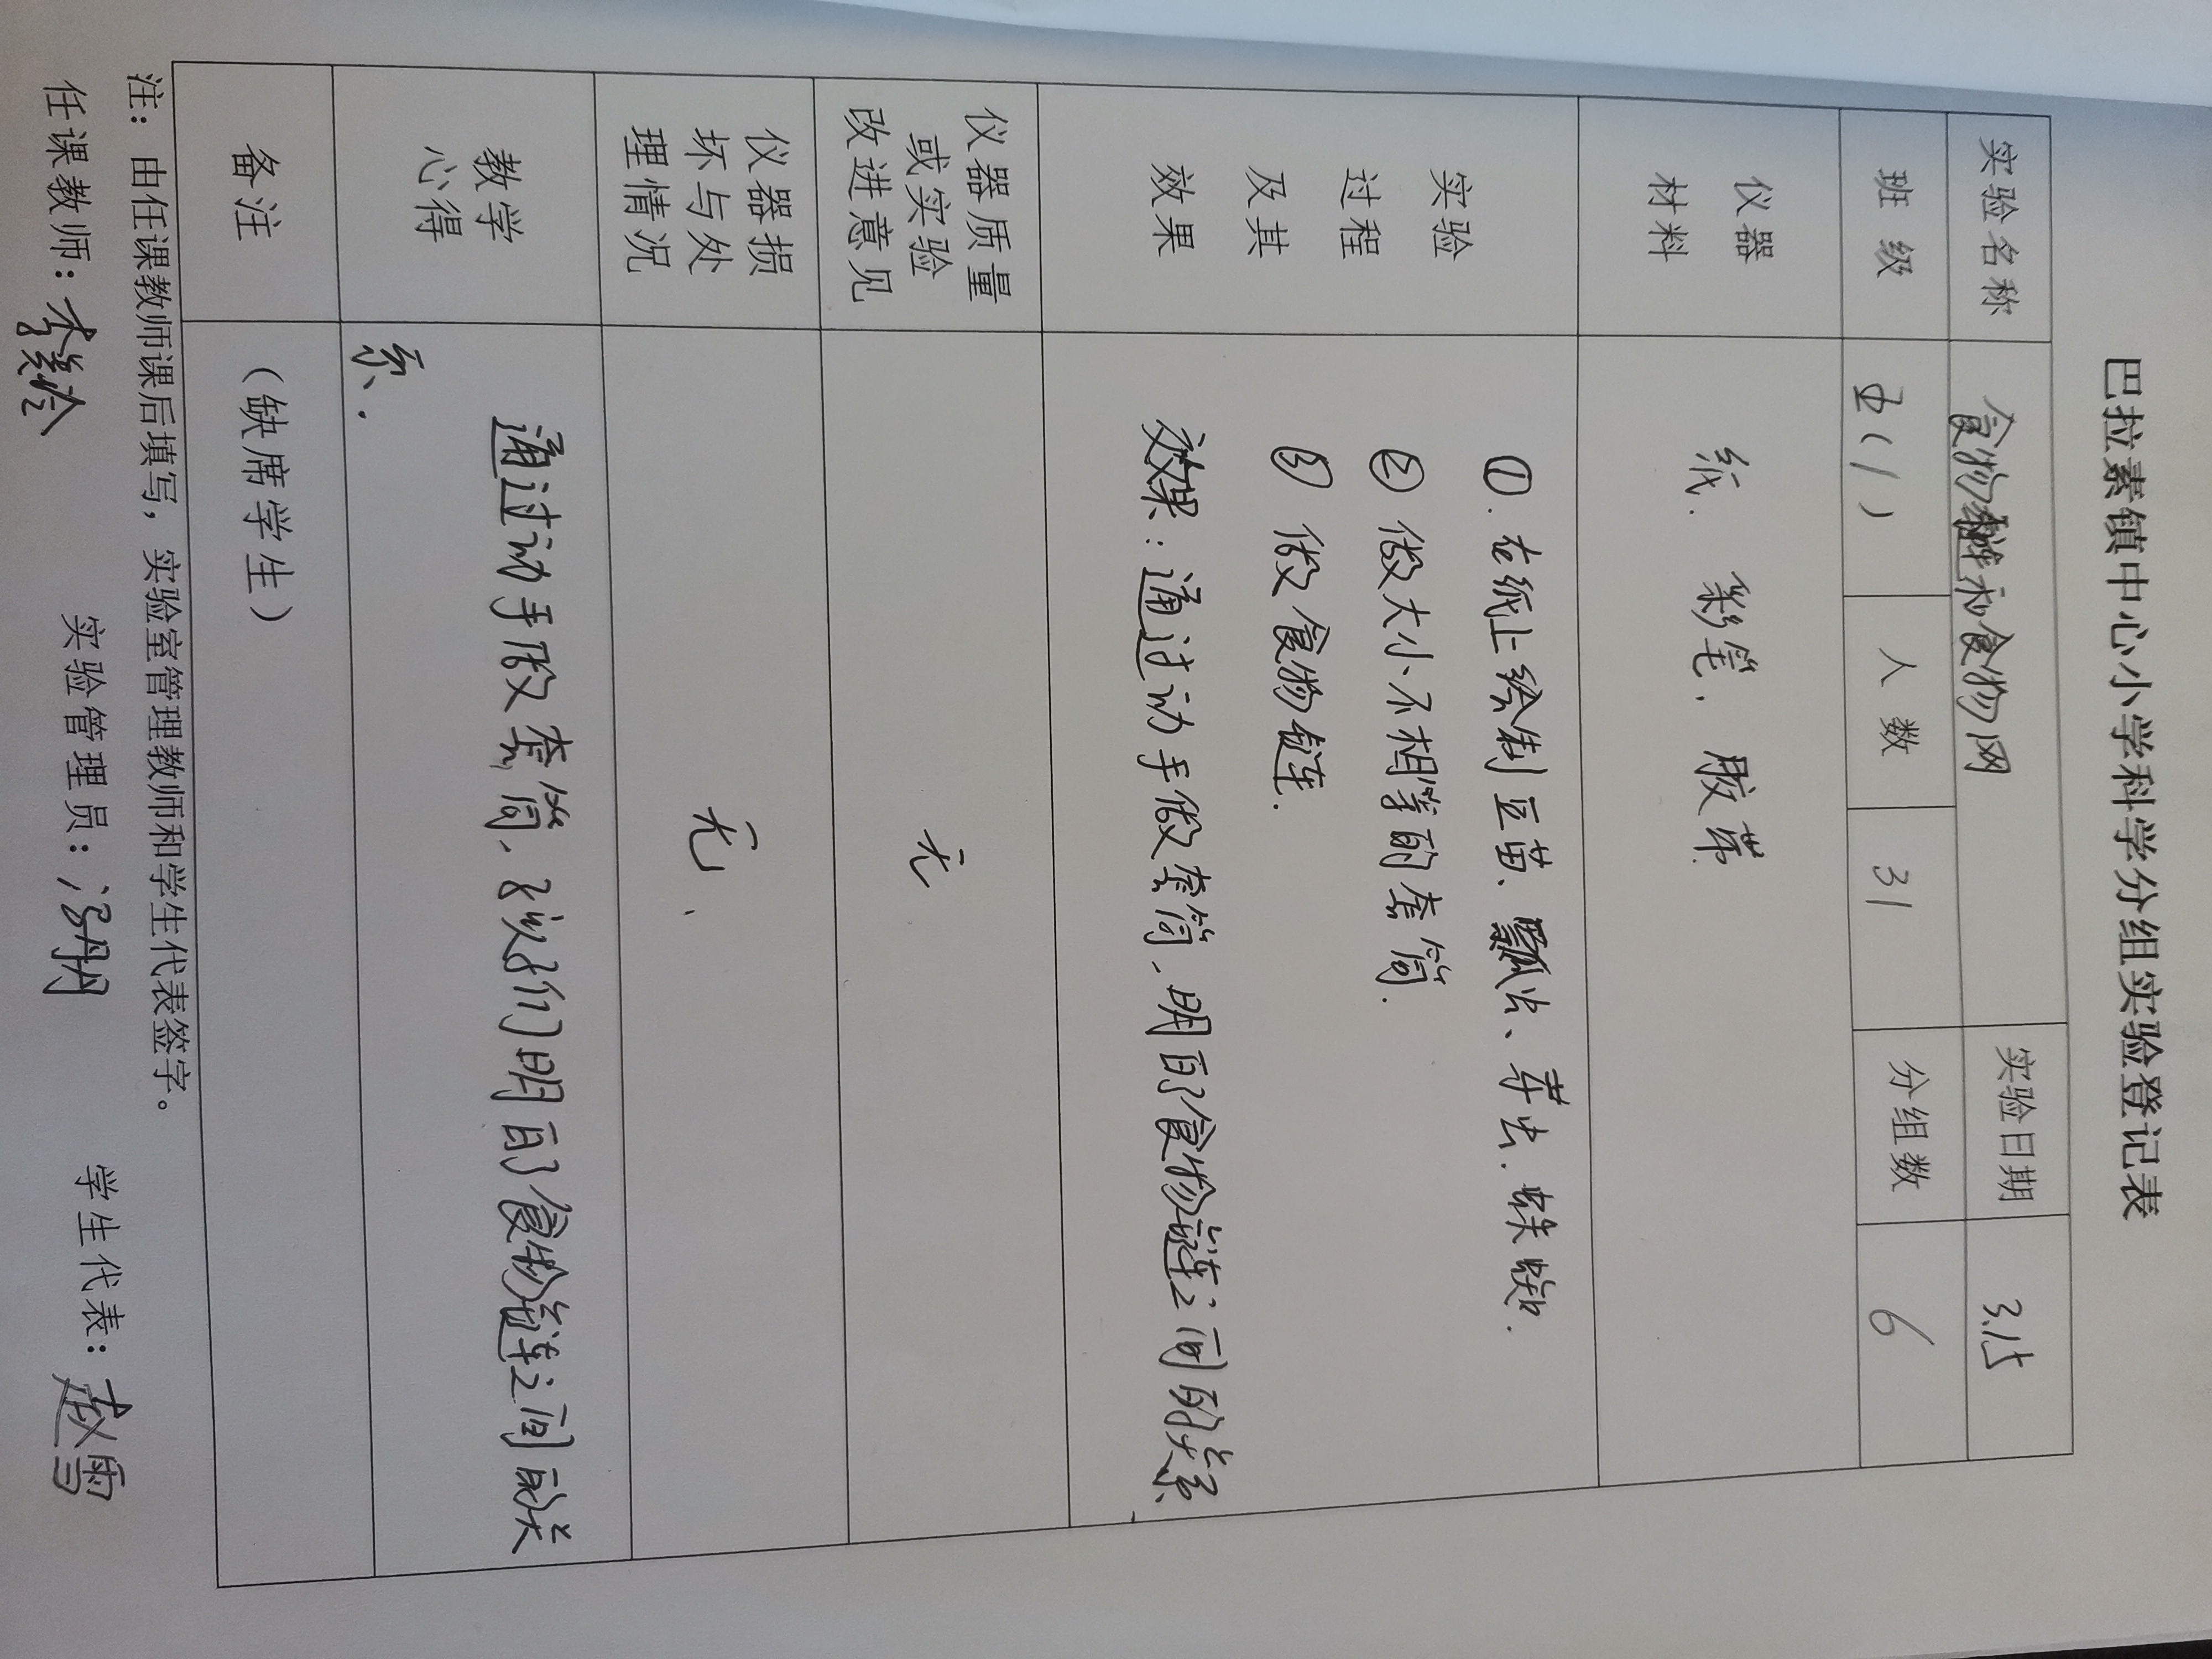 巴拉素镇中心小学科学分组实验登记表
实验名称 食物链和食物网 实验日期 3.15
班 级 五(1) 人 数 31 分组数 6
仪器
材料
纸、彩笔、胶带
实验
过程
及其
效果
①. 在纸上绘制豆苗、瓢虫、芽虫.
② 做大小不相等的套筒.
③ 做食物链.
效果:通过动手做套筒、明白了食物链之间的关系
仪器质量
或实验
改进意见
无
仪器损
坏与处
理情况
无、
教学
心得
通过动手做套筒、孩子们明白了食物链之间的关
系.
备注
(缺席学生)
注:由任课教师课后填写,实验室管理教师和学生代表签字。
任课教师:李 实验管理员: 学生代表:赵雪